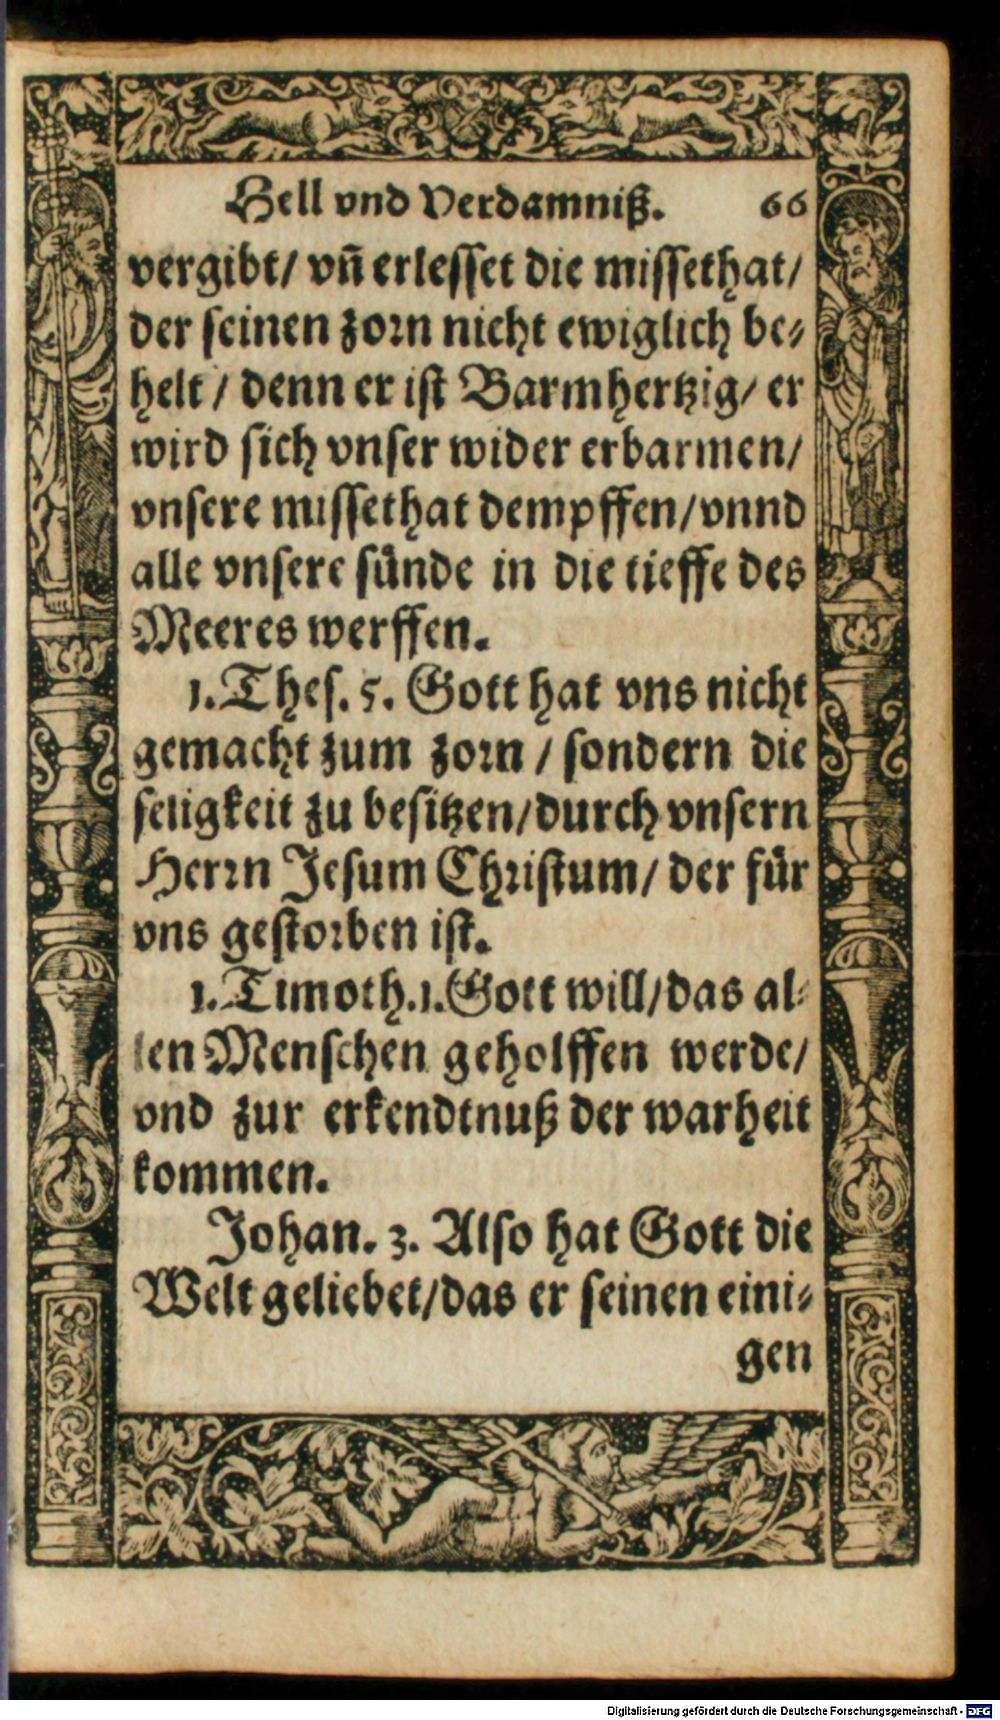 Hell vnd Verdamniß. 66
vergibt/ vñ erlesset die missethat/
der seinen zorn nicht ewiglich be-
helt / denn er ist Barmhertzig/ er
wird sich vnser wider erbarmen/
vnsere missethat dempffen/vnnd
alle vnsere sünde in die tieffe des
Meeres werffen.
1. Thes. 5. Gott hat vns nicht
gemacht zum zorn / sondern die
seligkeit zu besitzen/durch vnsern
Herrn Jesum Christum/ der für
vns gestorben ist.
1. Timoth.1. Gott will/das al-
len Menschen geholffen werde/
vnd zur erkendtnuß der warheit
kommen.
Johan. 3. Also hat Gott die
Welt geliebet/das er seinen eini-
gen
Digitalisierung gefördert durch die Deutsche Forschungsgemeinschaft - DFG